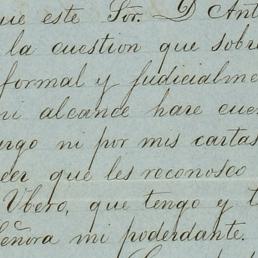 que este Sor. D Ant
la cuestion que sobre
formal y judicialme
mi alcance hare cue
rgo ni por mis cartas
cer que les reconosco
Vbero, que tengo y t
Señora mi poderdante.